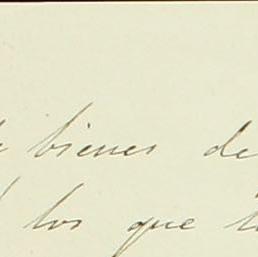 bienes de
los que